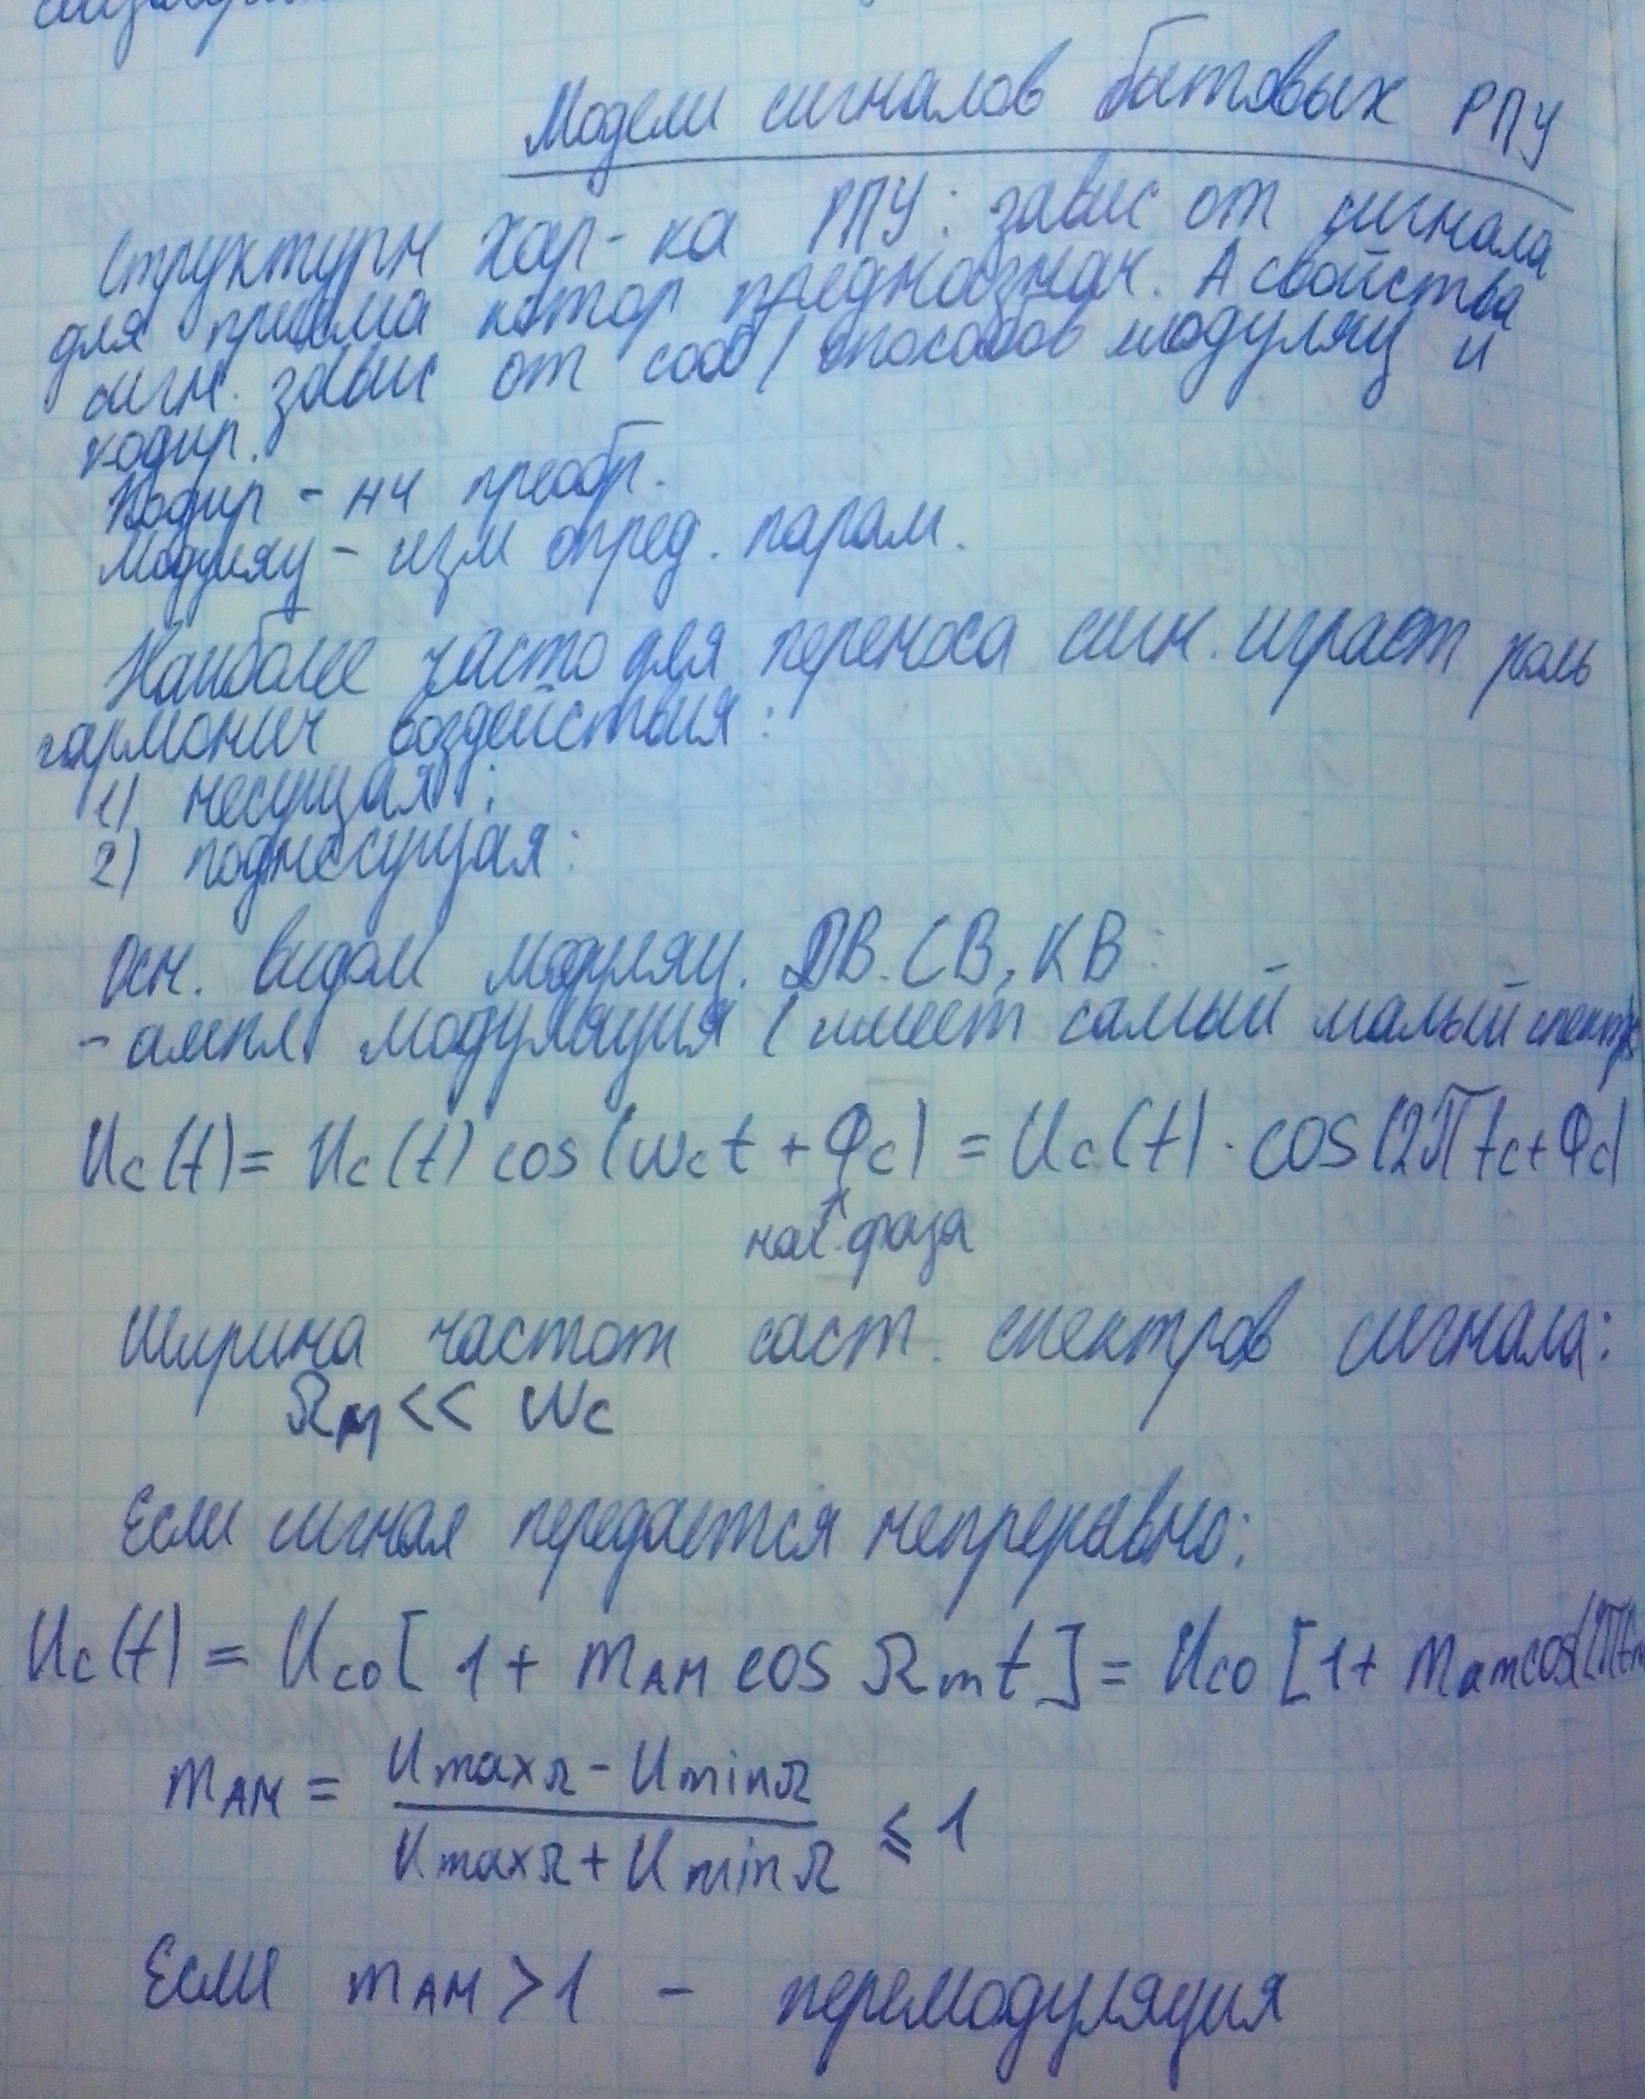 Модели сигналов бытовых РПУ
Структурн хар-ка РПУ: завис от сигнала
для приема котор предназнач. А свойства
сигн. завис от сооб/способов модуляц и
кодир.
Кодир - нч преобр.
Модуляц - изм опред. парам.
Наиболее часто для переноса сигн. играет роль
гармонич воздействия:
1) несущая:
2) поднесущая:
Осн. видом модуляц. ДВ. СВ, КВ:
- ампл. модуляция (имеет самый малый спектр
Uc(t) = Uc(t) cos(ωct + φc) = Uc(t) · cos(2πfc + φc)
нач. фаза
Ширина частот сост. спектров сигнала:
Ωм << ωc
Если сигнал передается непрерывно:
Uc(t) = Uco[1 + mАМ cos Ωmt] = Uco [1 + mam cos(2πfm
mАМ = (Umax Ω - Umin Ω) / (Umax Ω + Umin Ω) ⩽ 1
Если mАМ > 1 - перемодуляция